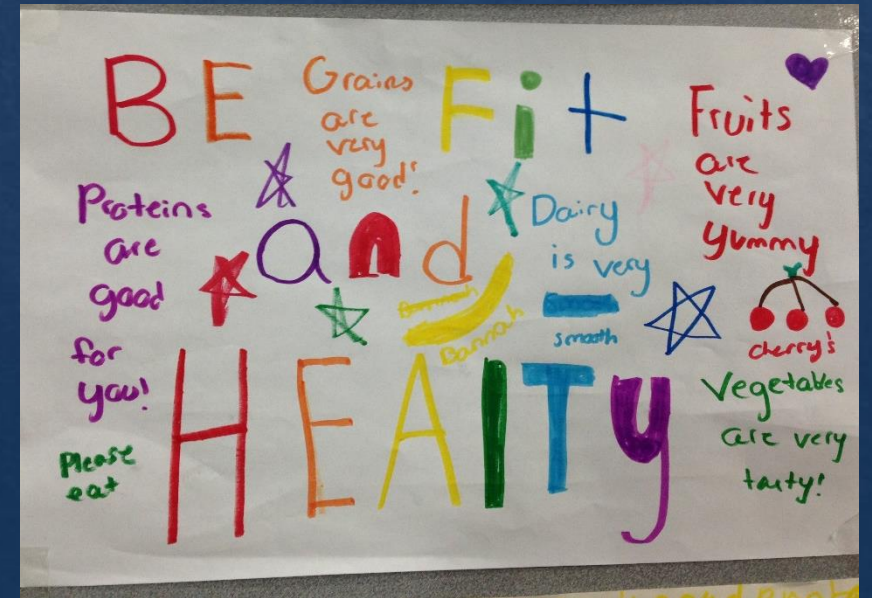 BE Fit
and
HEAlTy
Grains
are
very
good!
Fruits
are
very
yummy
Proteins
are
good
for
you!
Please
eat
Dairy
is very
smooth
Bannah
cherry's
Vegetables
are very
tasty!